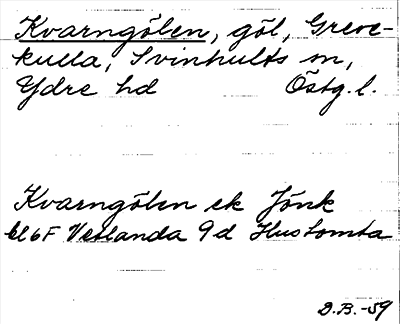 Kvarngölen, göl, Greve-
kulla, Svinhults sn,
Ydre hd Östg. l.
Kvarngölen ek Jönk
bl 6F Vetlanda 9d Hustomta
D.B.-59